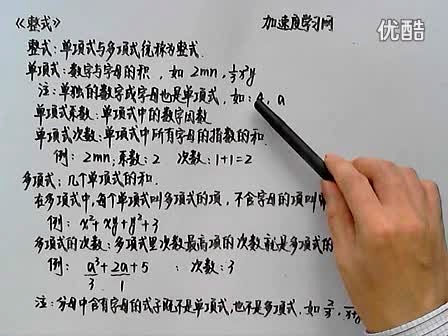 《整式》 加速度学习网
优酷
整式:单项式与多项式统称为整式.
单项式:数字与字母的积,如 2mn, 1/3x²y
注:单独的数字或字母也是单项式,如: a
单项式系数:单项式中的数字因数
单项式次数:单项式中所有字母的指数的和.
例: 2mn;系数:2 次数:1+1=2
多项式:几个单项式的和.
在多项式中,每个单项式叫多项式的项,不含字母的项叫
例: x²+xy+y²+3
多项式的次数:多项式里次数最高项的次数就是多项式的
例: a³/3+2a/1+5 : 次数:3
注:分母中含有字母的式子既不是单项式,也不是多项式.如